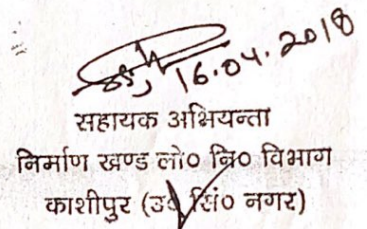 16.04.2018
सहायक अभियन्ता
निर्माण खण्ड लो० नि० विभाग
काशीपुर (उ० सिं० नगर)